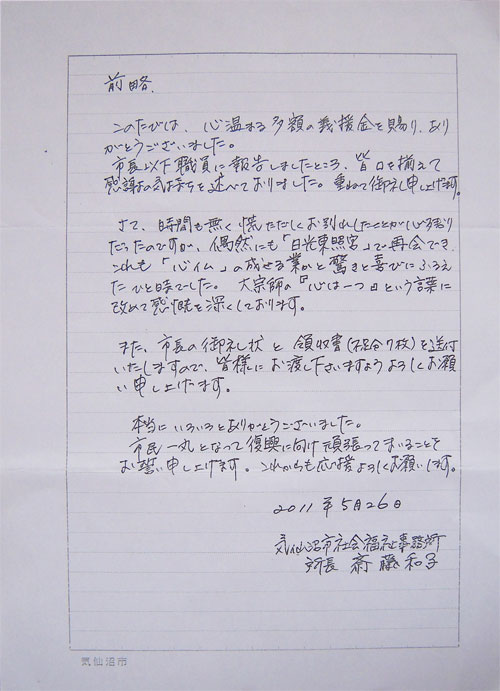 前略.
このたびは、心温まる多額の義援金を賜り、あり
がとうございました。
市長以下職員に報告しましたところ、皆口を揃えて
感謝の気持ちを述べておりました。重ねて御礼申し上げます。
さて、時間も無く慌ただしくお別れしたことが心残り
だったのですが、偶然にも「日光東照宮」で再会でき、
これも「心仏」の成せる業かと驚きと喜びにふるえ
たひと時でした。大宗師の『心は一つ』という言葉に
改めて感慨を深くしております。
また、市長の御礼状と領収書(7枚)を送付
いたしますので、皆様にお渡し下さいますようよろしくお願
い申し上げます。
本当にいろいろとありがとうございました。
市民一丸となって復興に向け頑張ってまいることを
お誓い申し上げます。これからも応援よろしくお願いします。
2011年5月26日
気仙沼市社会福祉事務所
所長 斎藤和子
気仙沼市